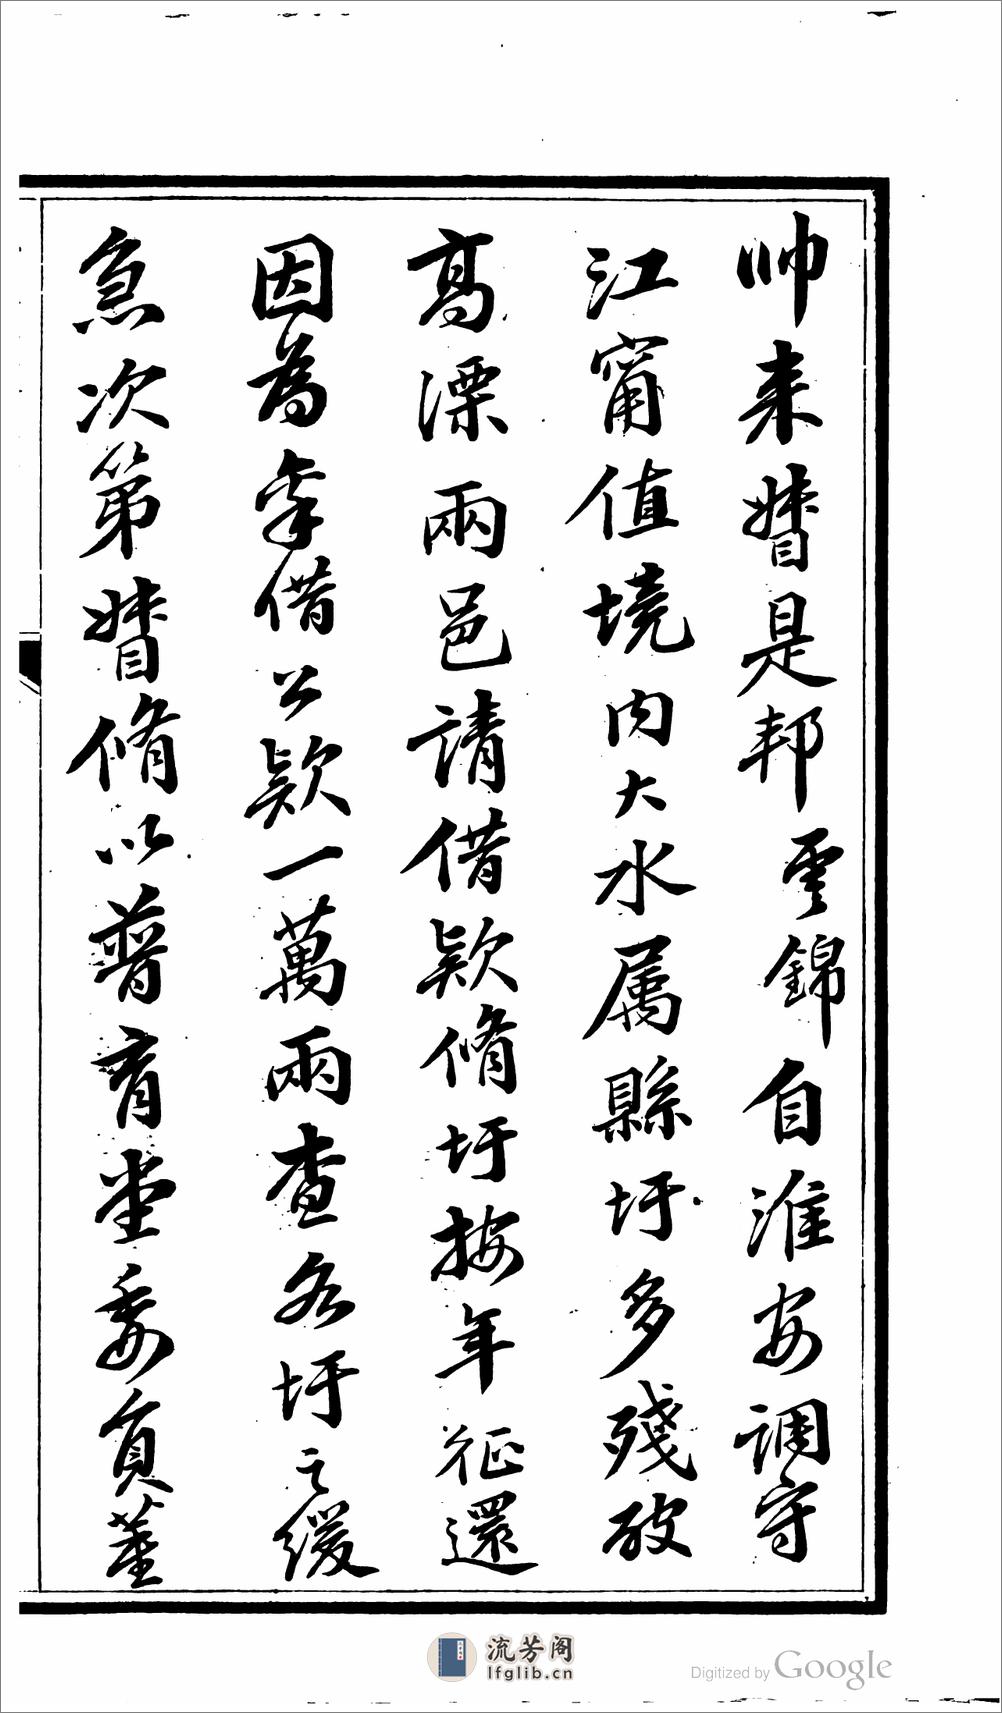 帥来督是邦雲錦自淮安調守
江甯值境内大水属縣圩多殘破
高溧兩邑請借欵脩圩按年征還
因為牽借公欵一萬兩查各圩之緩
急次第督脩以普育堂委員董
流芳阁
lfglib.cn
Digitized by Google